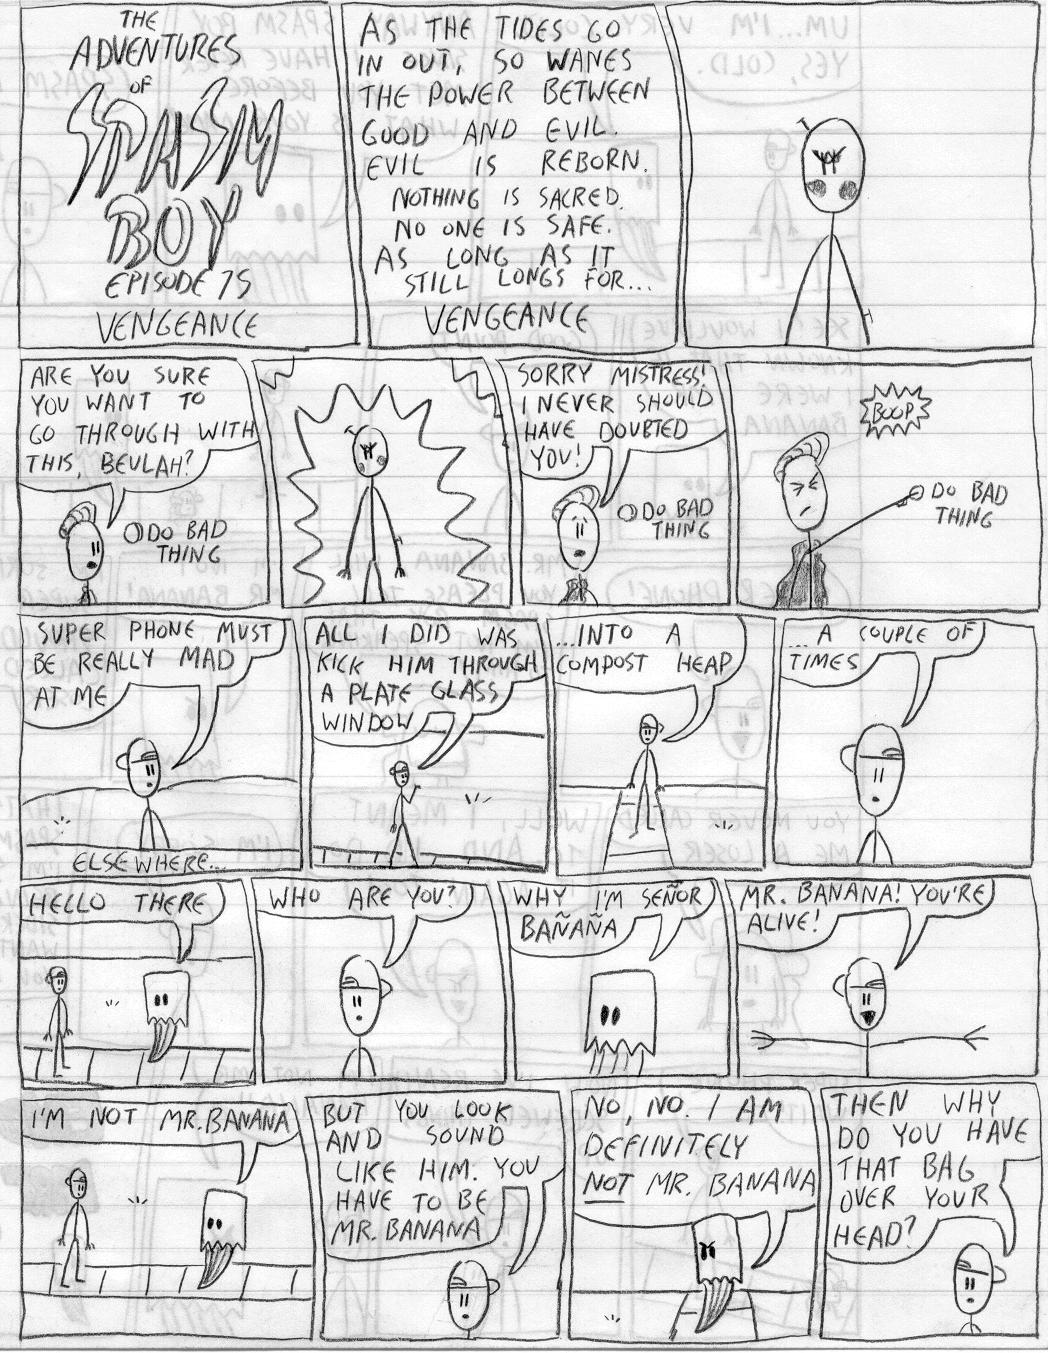 THE
ADVENTURES
OF
SPASM
BOY
EPISODE 75
VENGEANCE
AS THE TIDES GO
IN OUT, SO WANES
THE POWER BETWEEN
GOOD AND EVIL.
EVIL IS REBORN.
NOTHING IS SACRED.
NO ONE IS SAFE.
AS LONG AS IT
STILL LONGS FOR...
VENGEANCE
ARE YOU SURE
YOU WANT TO
GO THROUGH WITH
THIS, BEULAH?
DO BAD
THING
SORRY MISTRESS!
I NEVER SHOULD
HAVE DOUBTED
YOU!
DO BAD
THING
BOOP
DO BAD
THING
SUPER PHONE MUST
BE REALLY MAD
AT ME
ELSEWHERE...
ALL I DID WAS
KICK HIM THROUGH
A PLATE GLASS
WINDOW
...INTO A
COMPOST HEAP
...A COUPLE OF
TIMES
HELLO THERE
WHO ARE YOU?
WHY I'M SEÑOR
BAÑAÑA
MR. BANANA! YOU'RE
ALIVE!
I'M NOT MR. BANANA
BUT YOU LOOK
AND SOUND
LIKE HIM. YOU
HAVE TO BE
MR. BANANA
NO, NO. I AM
DEFINITELY
NOT MR. BANANA
THEN WHY
DO YOU HAVE
THAT BAG
OVER YOUR
HEAD?